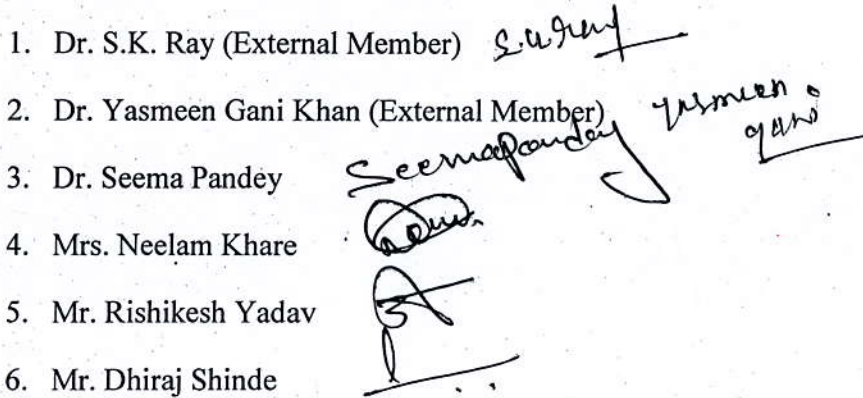 1. Dr. S.K. Ray (External Member) S.K. Ray
2. Dr. Yasmeen Gani Khan (External Member) Yasmeen Gani
3. Dr. Seema Pandey Seema Pandey
4. Mrs. Neelam Khare
5. Mr. Rishikesh Yadav
6. Mr. Dhiraj Shinde